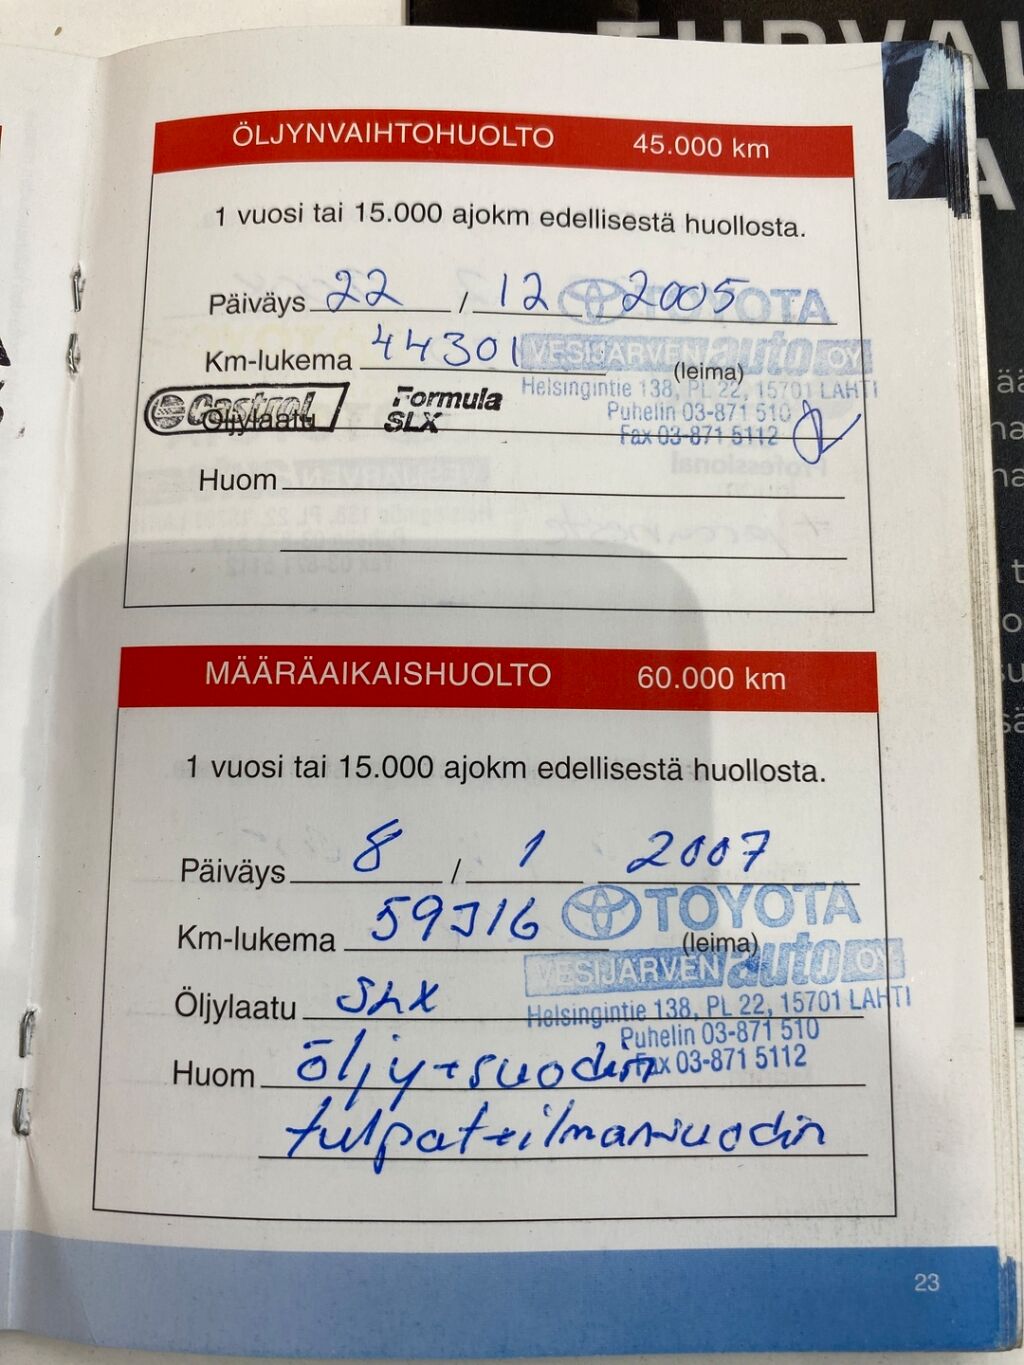 TURVAL
A
ÖLJYNVAIHTOHUOLTO 45.000 km
1 vuosi tai 15.000 ajokm edellisestä huollosta.
Päiväys 22 / 12 2005
TOYOTA
Km-lukema 44301 (leima)
VESIJÄRVEN auto OY
Helsingintie 138, PL 22, 15701 LAHTI
Castrol Formula
Öljylaatu SLX
Puhelin 03-871 510
Fax 03-871 5112
Huom
MÄÄRÄAIKAISHUOLTO 60.000 km
1 vuosi tai 15.000 ajokm edellisestä huollosta.
Päiväys 8 / 1 2007
TOYOTA
Km-lukema 59316 (leima)
VESIJÄRVEN auto OY
Öljylaatu SLX
Helsingintie 138, PL 22, 15701 LAHTI
Puhelin 03-871 510
Fax 03-871 5112
Huom öljy+suodin
tulpat+ilmansuodin
23